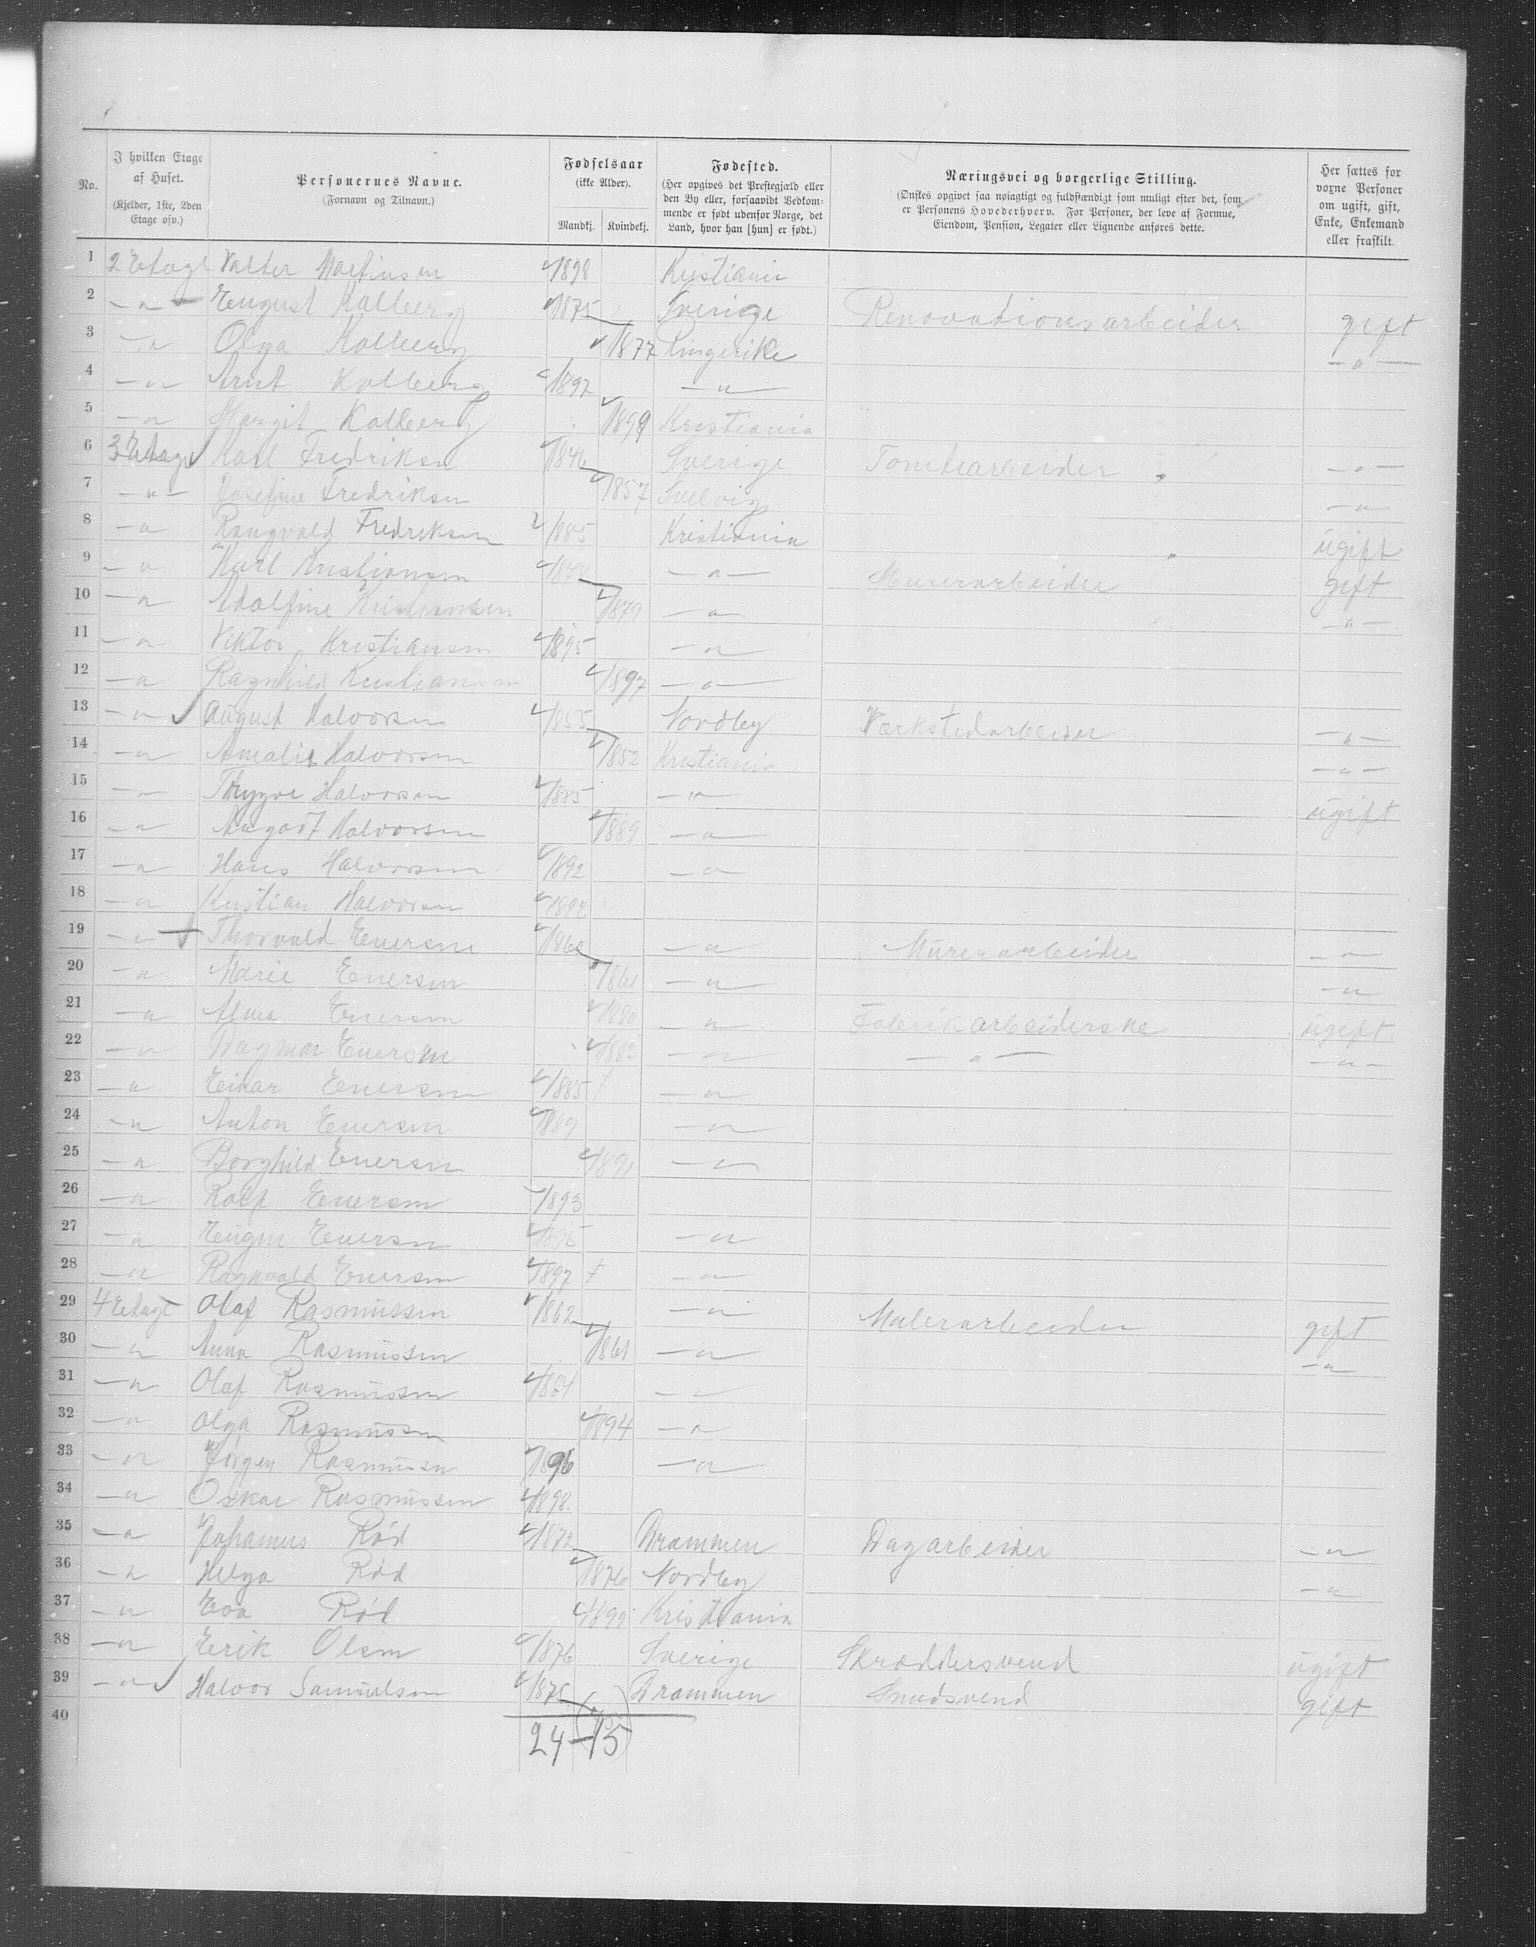 No. I hvilken Etage af Huset. (Kjelder, 1ste, 2den Etage osv.) Personernes Navne. (Fornavn og Tilnavn.) Fødselsaar (ikke Alder). Mandkj. Kvindekj. Fødested. (Her opgives det Prestegjæld eller den By eller, forsaavidt Bedkommende er født udenfor Norge, det Land, hvor han [hun] er født.) Næringsvei og borgerlige Stilling. (Ønskes opgivet saa nøiagtigt og fuldstændigt som muligt efter det, som er Personens Hovederhverv. For Personer, der leve af Formue, Eiendom, Pension, Legater eller Lignende anføres dette. Her sættes for voxne Personer om ugift, gift, Enke, Enkemand eller fraskilt.
1 2 Etage Valter Martinsen 1898 Kristiania
2 —"— August Kolberg 1875 Sverige Renovationsarbeider gift
3 —"— Olga Kolberg 1877 Ringerike —"—
4 —"— Arnt Kolberg 1897 —"—
5 —"— Margit Kolberg 1899 Kristiania
6 3 Etage Karl Fredriksen 1846 Sverige Tomtearbeider —"—
7 —"— Josefine Fredriksen 1857 Svelvig —"—
8 —"— Rangvald Fredriksen 1885 Kristiania ugift
9 —"— Karl Kristiansen —"— Murerarbeider gift
10 —"— Adolfine Kristiansen 1879 —"— —"—
11 —"— Viktor Kristiansen 1895 —"—
12 —"— Ragnhild Kristiansen 1897 —"—
13 —"— August Halvorsen 1855 Nordby Værkstedarbeider —"—
14 —"— Amalie Halvorsen 1852 Kristiania —"—
15 —"— Thrygve Halvorsen 1885 —"— ugift
16 —"— Halvorsen 1889 —"—
17 —"— Hans Halvorsen 1892 —"—
18 —"— Kristian Halvorsen 1894
19 —"— Thorvald Enersen 1860 —"— Murerarbeider —"—
20 —"— Marie Enersen 1861 —"— —"—
21 —"— Alma Enersen 1880 —"— Fabrikarbeiderske ugift
22 —"— Dagmar Enersen 1883 —"— —"— —"—
23 —"— Einar Enersen 1885 —"—
24 —"— Anton Enersen 1889 —"—
25 —"— Borghild Enersen 1891 —"—
26 —"— Rolf Enersen 1893
27 —"— Eugen Enersen 1895 —"—
28 —"— Ragnvald Enersen 1897 —"—
29 4 Etage Olaf Rasmussen 1862 —"— Malerarbeider gift
30 —"— Anna Rasmussen 1861 —"— —"—
31 —"— Olaf Rasmussen —"—
32 —"— Olga Rasmussen 1894 —"—
33 —"— Jørgen Rasmussen 1896 —"—
34 —"— Oskar Rasmussen 1898
35 —"— Johannes Rød 1872 Drammen Dagarbeider —"—
36 —"— Helga Rød 1876 Nordby —"—
37 —"— Eva Rød 1899 Kristiania
38 —"— Erik Olsen 1876 Sverige Skræddersvend ugift
39 —"— Halvor Samuelsen 1875 Drammen Smedsvend gift
40
24-15